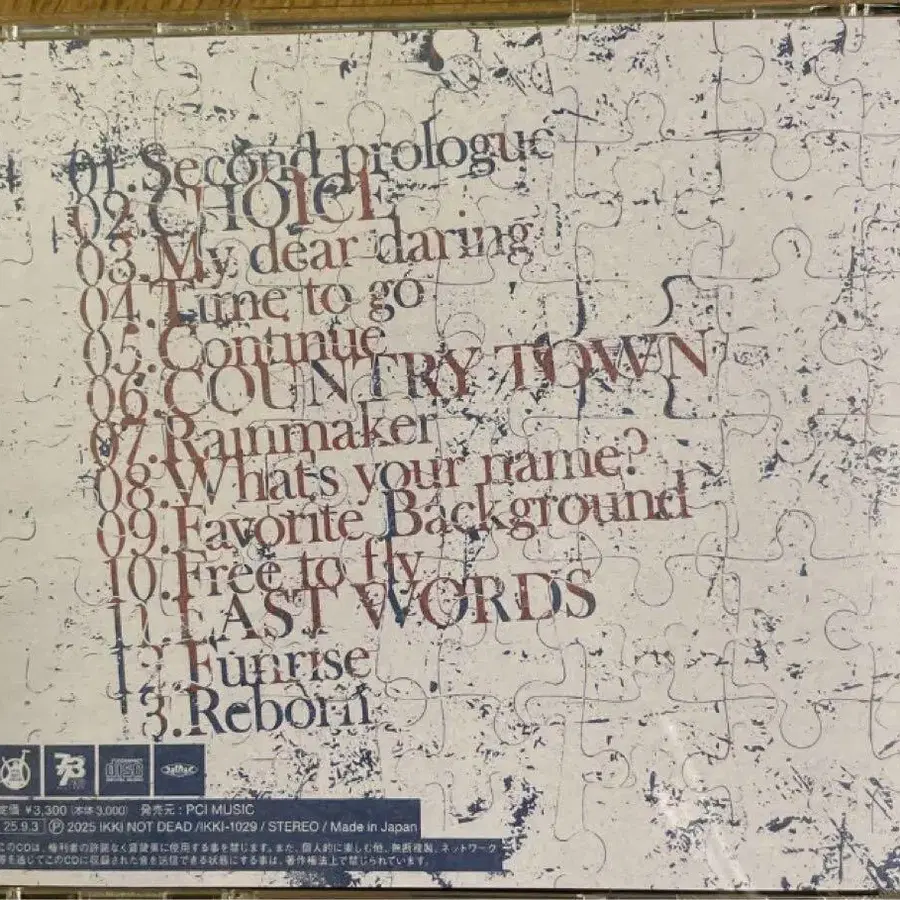 01.Second prologue
02.CHOICE
03.My dear daring
04.Time to go
05.Continue
06.COUNTRY TOWN
07.Rainmaker
08.What's your name?
09.Favorite Background
10.Free to fly
11.LAST WORDS
12.Funrise
13.Reborn
定価 ¥3,300 (本体 3,000) 発売元 : PCI MUSIC
25.9.3 Ⓟ 2025 IKKI NOT DEAD /IKKI-1029 / STEREO / Made in Japan
このCDは、権利者の許諾なく賃貸業に使用する事を禁じます。また、個人的に楽しむ他、無断複製、ネットワーク
等を通じてこのCDに収録された音を送信できる状態にする事は、著作権法上で禁じられています。